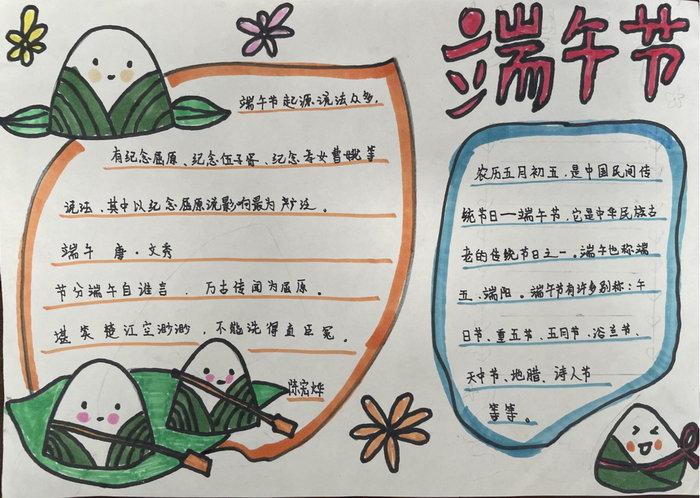 端午节
端午节起源说法众多,
有纪念屈原、纪念伍子胥、纪念孝女曹娥等
说法,其中以纪念屈原说影响最为广泛。
端午 唐·文秀
节分端午自谁言, 万古传闻为屈原。
堪笑楚江空渺渺,不能洗得直臣冤。
陈宏烨
农历五月初五,是中国民间传
统节日——端午节,它是中华民族古
老的传统节日之一。端午也称端
五、端阳。端午节有许多别称:午
日节、重五节、五月节、浴兰节、
天中节、地腊、诗人节
等等。